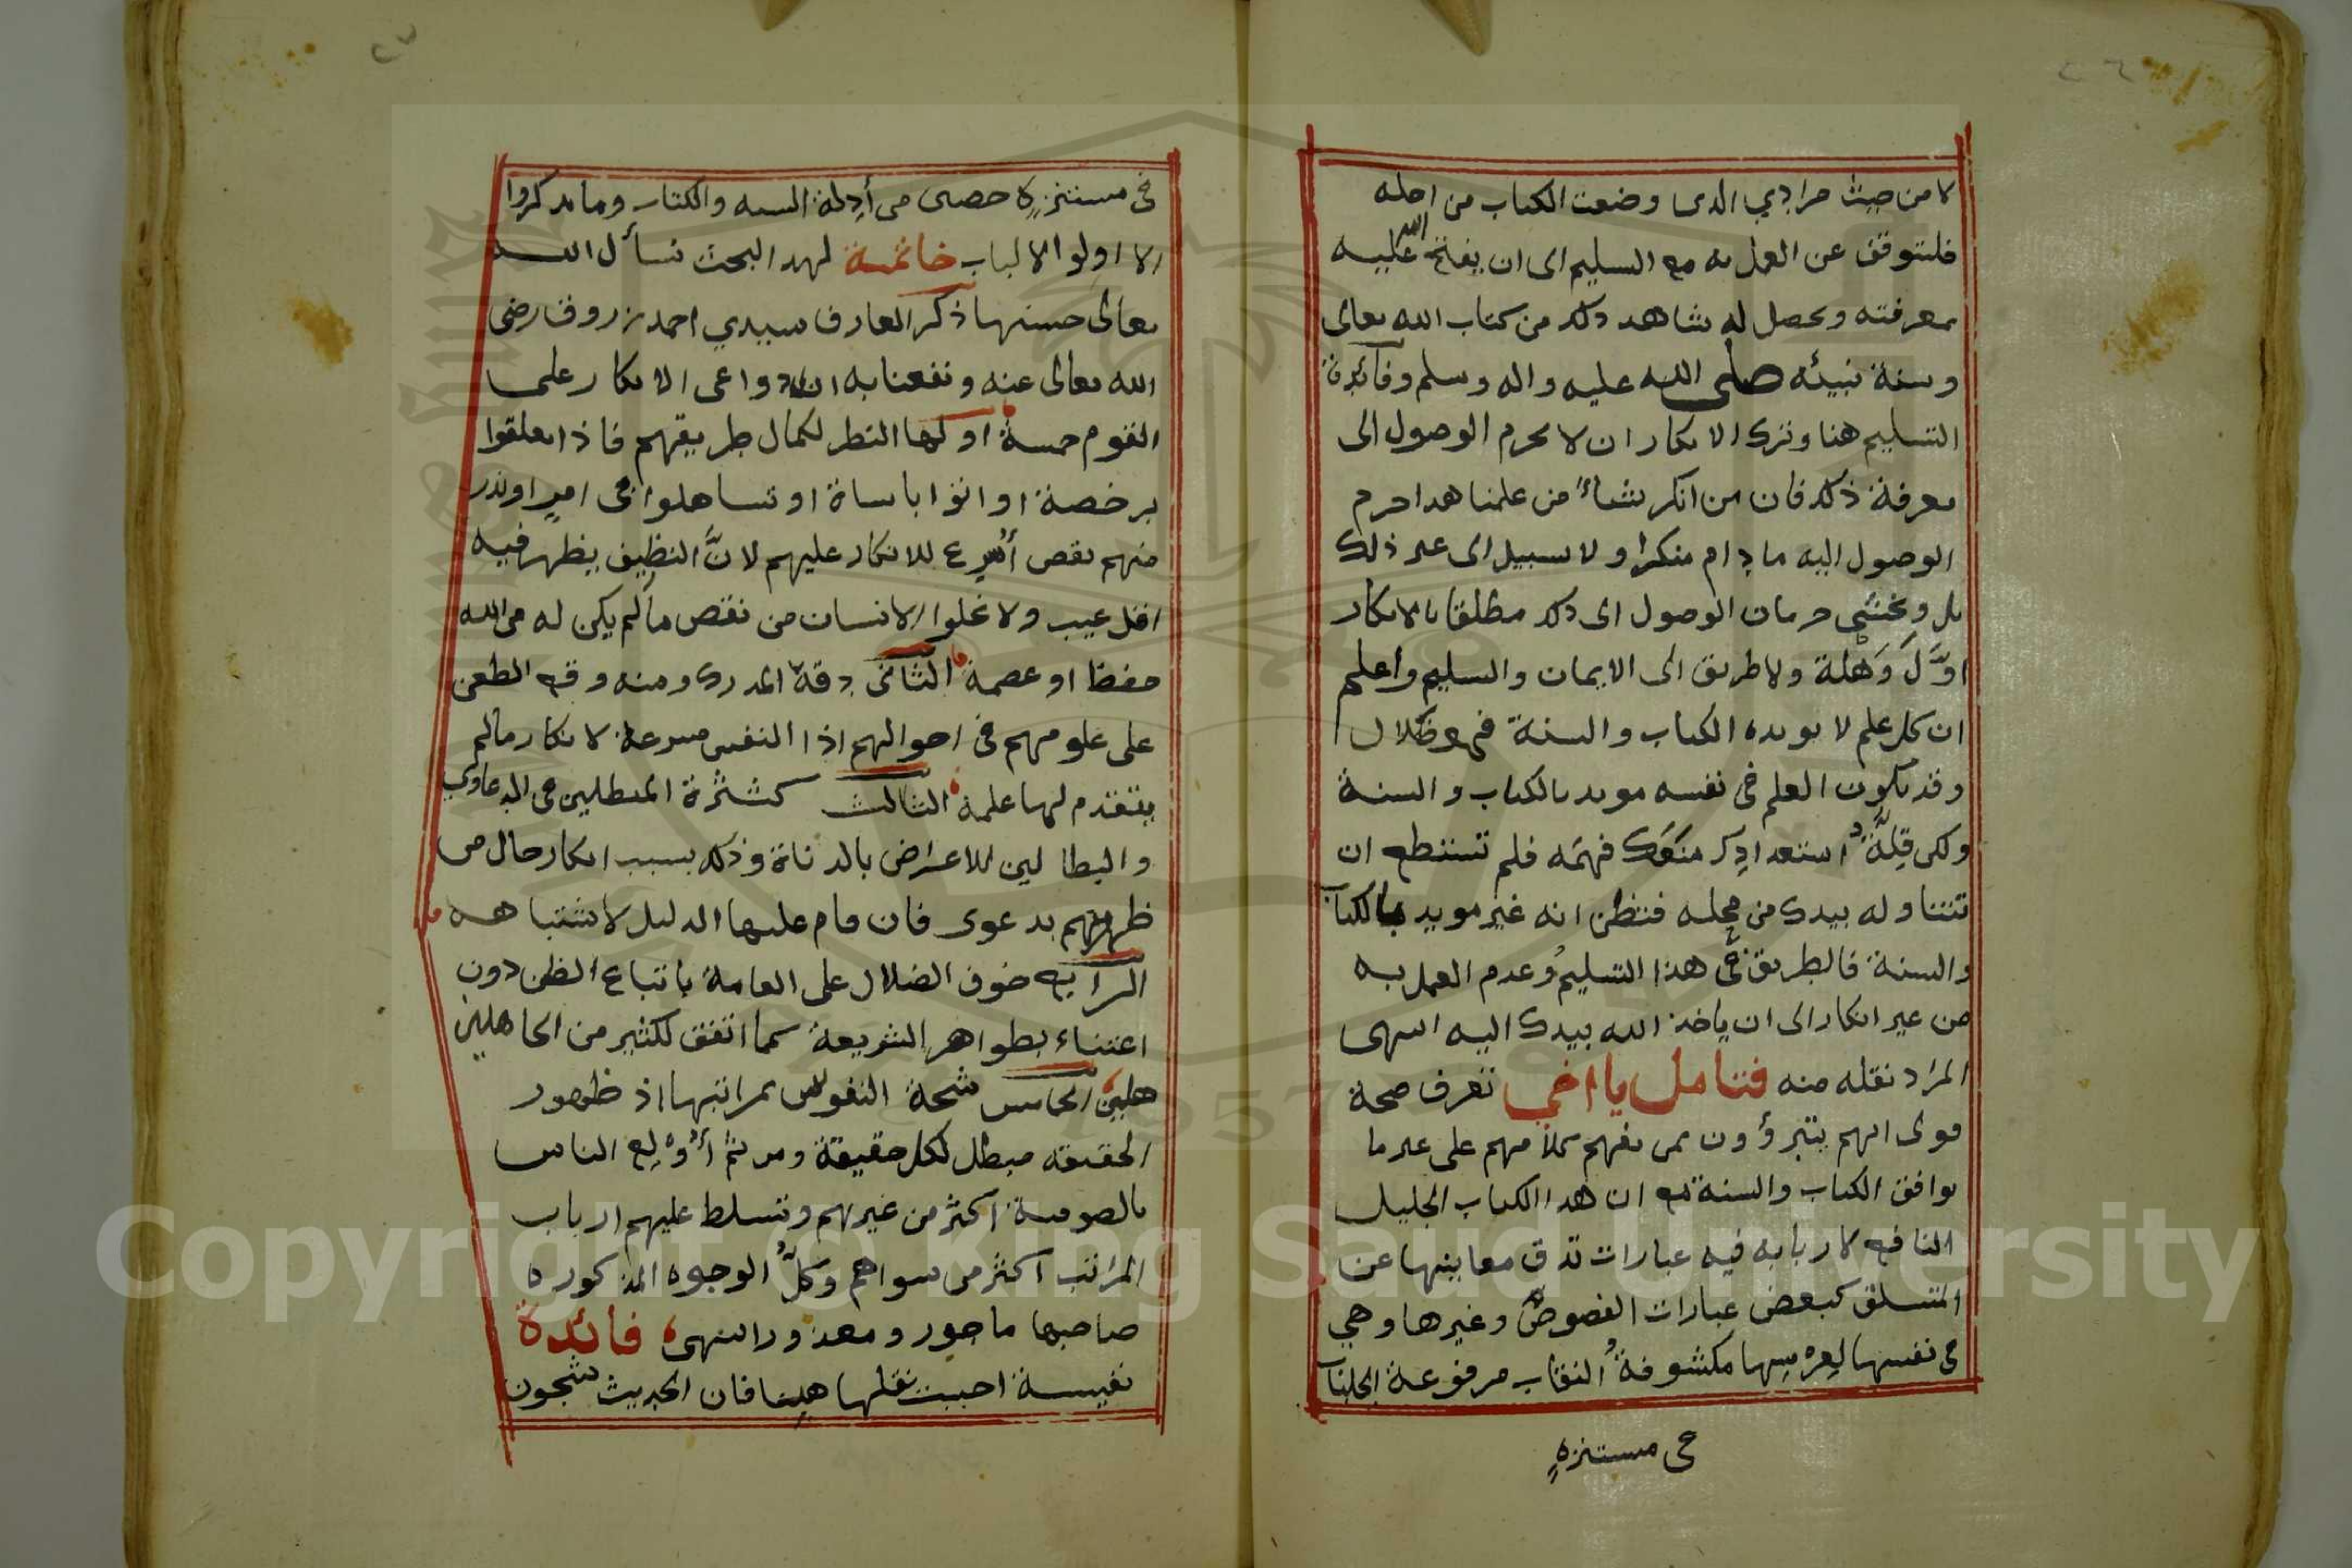 ٢٦
لا من حيث مرادي الذي وضعت الكتاب من اجله
فليتوقف عن العمل به مع التسليم الى ان يفتح الله عليه
بمعرفته ويحصل له شاهد ذلك من كتاب الله تعالى
وسنة نبيئه صلى الله عليه واله وسلم وفائدة
التسليم هنا وترك الانكار ان لا يحرم الوصول الى
معرفة ذلك فان من انكر شيأً من علمنا هذا حرم
الوصول اليه ما دام منكرا ولا سبيل الى غير ذلك
بل ويخشى حرمان الوصول الى ذلك مطلقا بالانكار
اوَّلَ وَهْلة ولا طريق الى الايمان والتسليم واعلم
ان كل علم لا يويده الكتاب والسنة فهو ضلال
وقد يكون العلم في نفسه مويد بالكتاب والسنة
ولكن قِلَّةُ استعدادِك منعَك فهمَه فلم تستطع ان
تتناوله بيدك من محله فتظن انه غير مويد بالكتاب
والسنة فالطريق في هذا التسليمُ وعدم العمل به
من غير انكار الى ان ياخذ الله بيدك اليه انتهى
المراد نقله منه فتامل يا اخي تعرف صحة
قولى انهم يتبرؤون ممن يفهم كلامهم على غير ما
يوافق الكتاب والسنة ان هذا الكتاب الجليل
النافع لاربابه فيه عبارات تدق معاينها عن
المتسلق كبعض عبارات الفصوص وغيرها وهي
في نفسها مكشوفةُ النقاب مرفوعة الجلباب
في مستنزهٍ
٢٧
في مستنزهٍ حصن من أدِلة السنه والكتاب وما يذكروا
الا اولوا الالباب خاتمة لهذا البحث نسأل الله
تعالى حسنها ذكر العارف سيدي احمد زروق رضى
الله تعالى عنه ونفعنا به ان دواعى الانكار على
القوم خمسة اولها النظر لكمال طريقهم فاذا تعلقوا
برخصة او اتوا باساة او تساهلوا في امرٍ او بدر
منهم نقص أسرع للانكار عليهم لانَّ النظيف يظهر فيه
اقل عيب ولا يخلوا الانسان من نقص ما لم يكن له من الله
حفظ او عصمة الثانى دقة المدرك ومنه وقع الطعن
على علومهم في احوالهم اذا النفس مسرعة لانكار مالم
يتقدم لها علمه الثالث كثرة المبطلين في الدعاوى
والبطالين للاعراض بالدناة وذلك بسبب انكار حال من
ظهر منهم بدعوى فان قام عليها الدليل لاشتباهه
الرابع خوف الضلال على العامة باتباع الظن دون
اعتناء بظواهر الشريعة كما اتفق لكثير من الجاهلين
هلين الخامس شحة النفوس بمراتبها اذ ظهور
الحقيقه مبطل لكل حقيقة ومن ثم أُوْلِع الناس
بالصوفية اكثر من غيرهم وتسلط عليهم ارباب
المراتب اكثر من سواهم وكلُّ الوجوه المذكوره
صاحبها ماجور ومعذور انتهى فائدة
نفيسة احببت نقلها هنا فان الحديث شجون
Copyright © King Saud University
1957